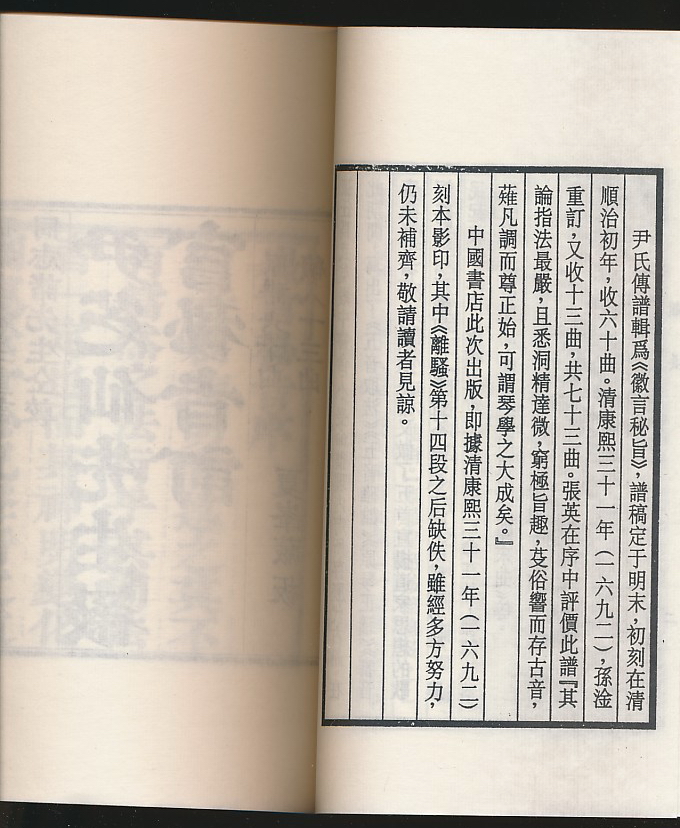 尹氏傳譜輯爲《徽言秘旨》，譜稿定于明末，初刻在清
順治初年，收六十曲。清康熙三十一年（一六九二），孫淦
重訂，又收十三曲，共七十三曲。張英在序中評價此譜『其
論指法最嚴，且悉洞精達微，窮極旨趣，芟俗響而存古音，
薙凡調而尊正始，可謂琴學之大成矣。』
中國書店此次出版，即據清康熙三十一年（一六九二）
刻本影印，其中《離騷》第十四段之后缺佚，雖經多方努力，
仍未補齊，敬請讀者見諒。